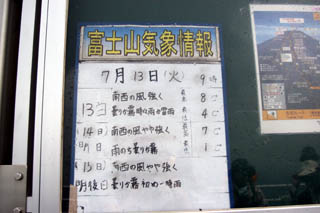 富士山気象情報
7月13日(火) 9時
南西の風強く 最高 8℃
13日 曇りか霧時々雨か雷雨 最低 4℃
14日 南西の風やや強く 最高 7℃
雨のち曇りか霧 最低 1℃
15日 南西の風やや強く
曇りか霧 初め一時雨